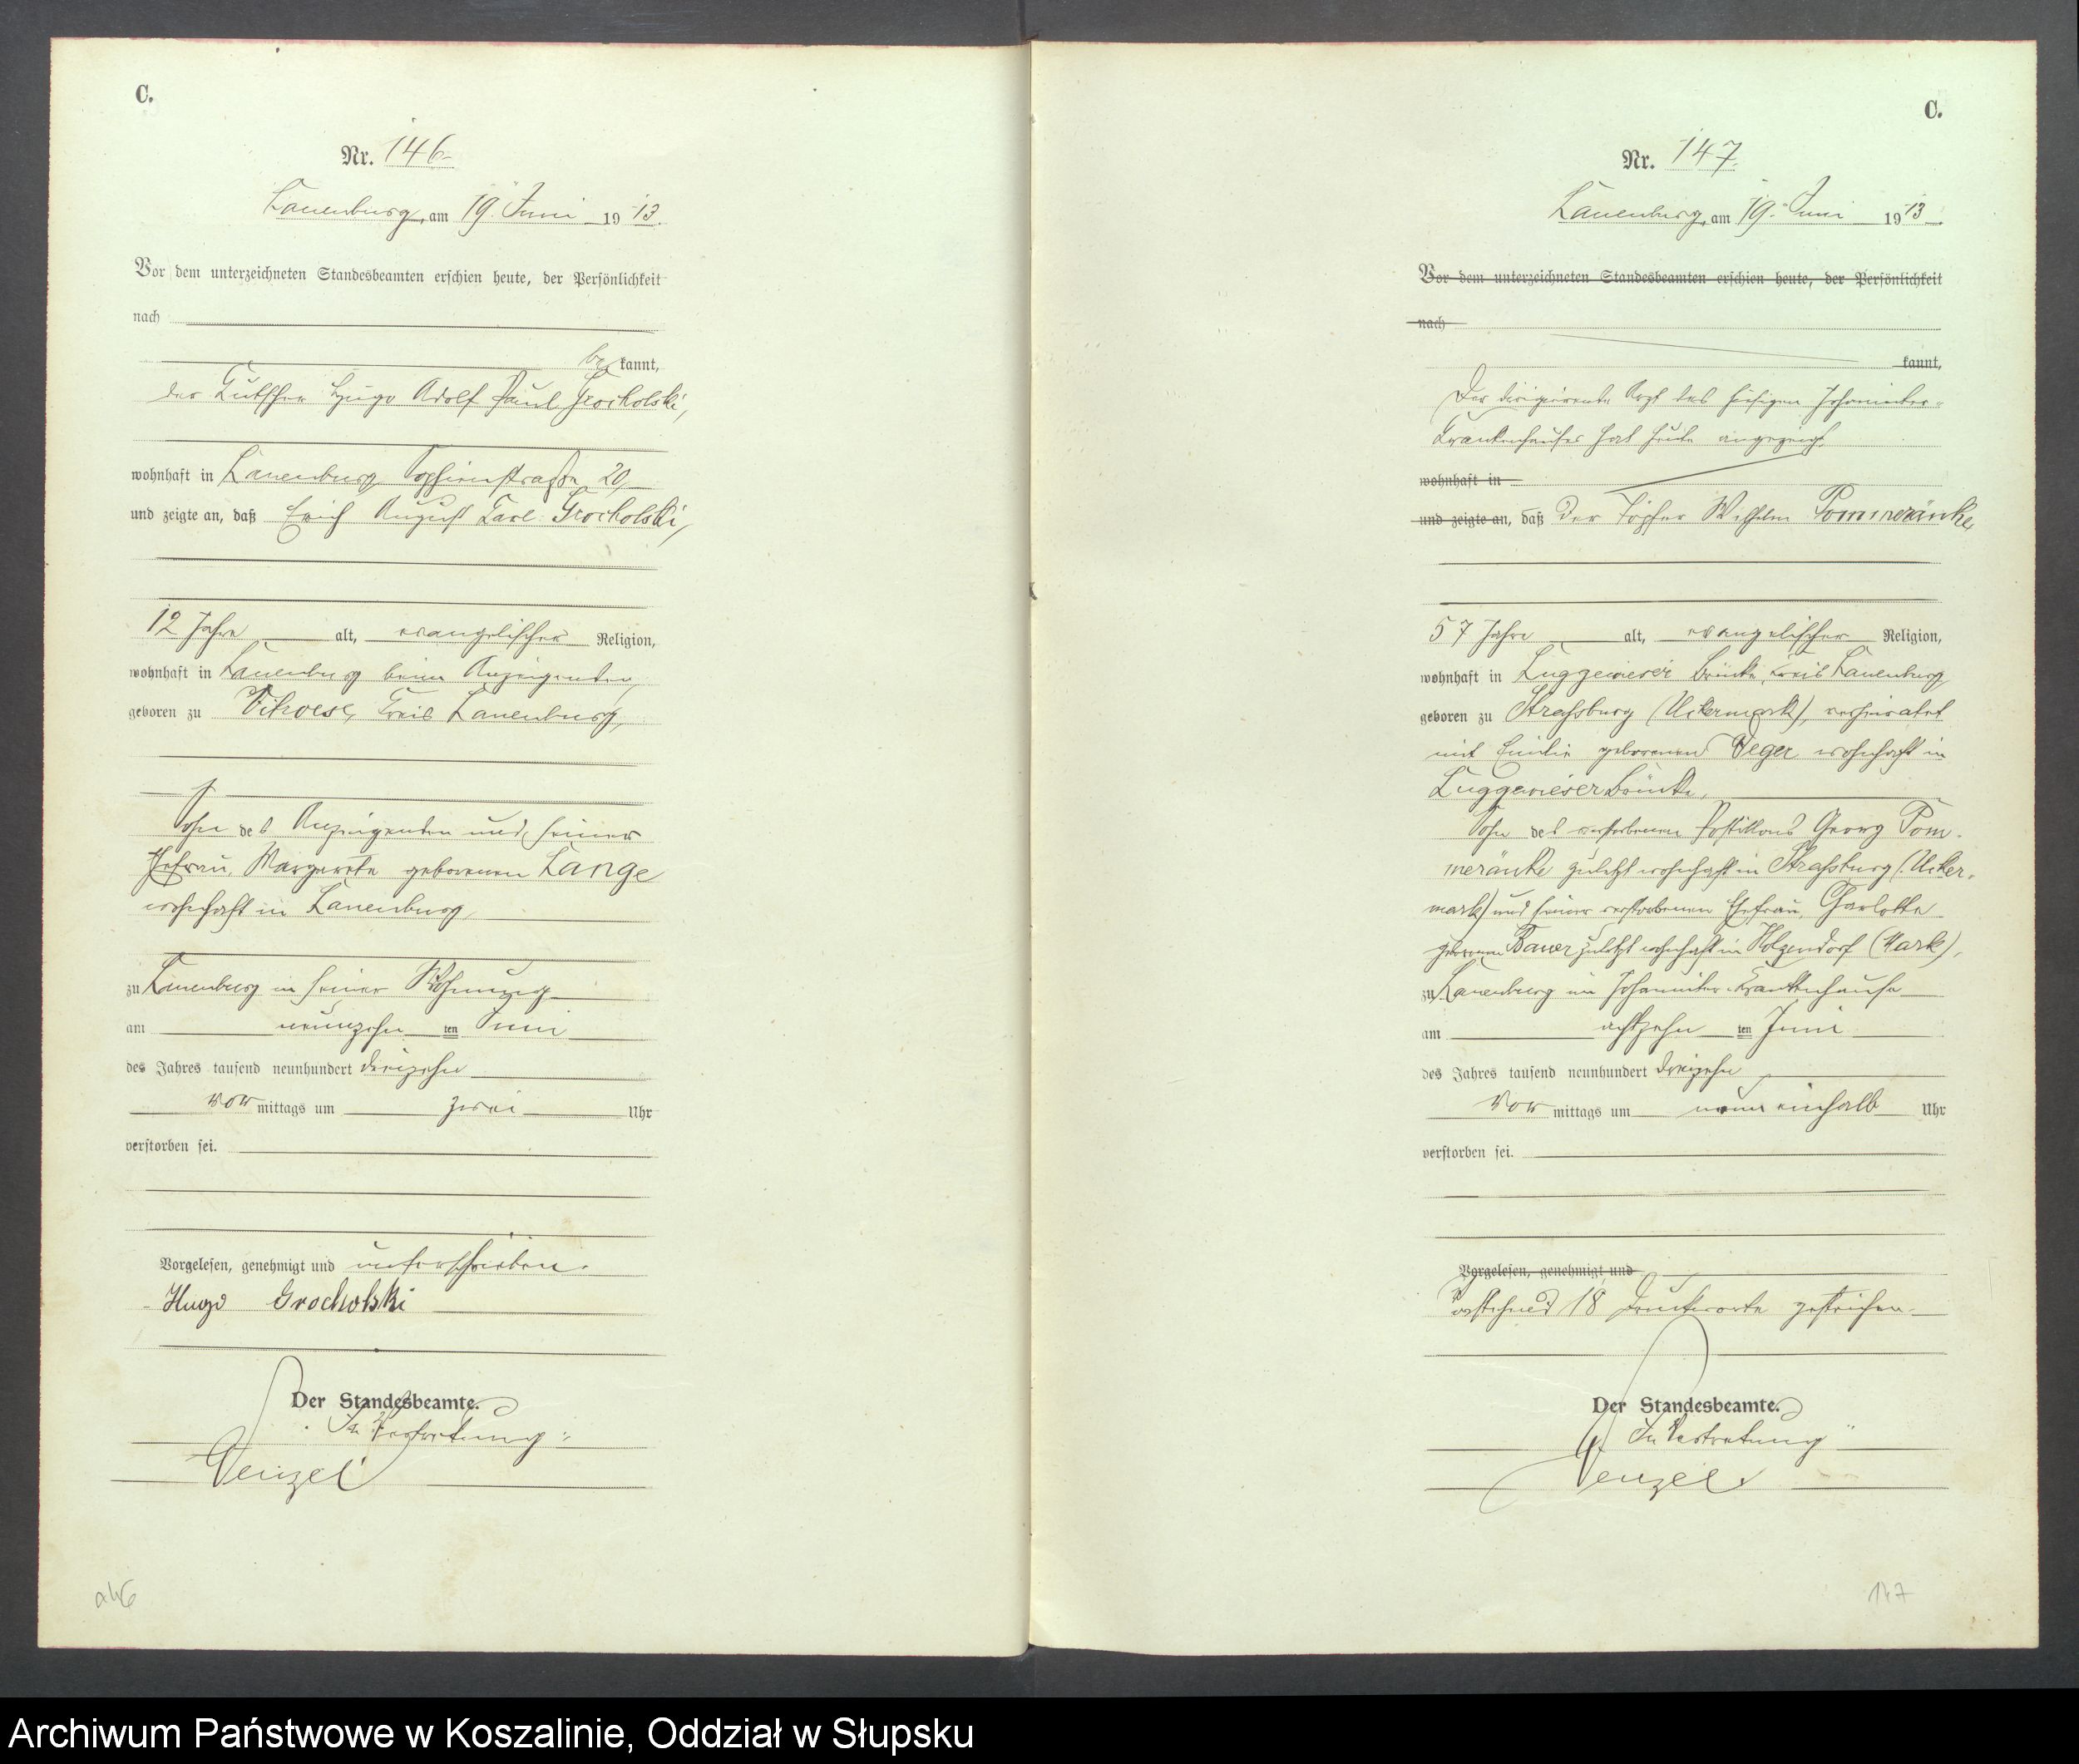 C.
Nr. 146.
Lauenburg, am 19. Juni 1913.
Vor dem unterzeichneten Standesbeamten erschien heute, der Persönlichkeit
nach
be kannt,
der Kutscher Hugo Adolf Paul Grocholski,
wohnhaft in Lauenburg Sophienstraße 20,
und zeigte an, daß Erich August Carl Grocholski,
12 Jahre alt, evangelischer Religion,
wohnhaft in Lauenburg beim Anzeigenden,
geboren zu Kreis Lauenburg,
Sohn des Anzeigenden und seiner
Ehefrau Margarete geborenen Lange
wohnhaft in Lauenburg,
zu Lauenburg in seiner Wohnung
am neunzehn ten Juni
des Jahres tausend neunhundert dreizehn
Vor mittags um zwei Uhr
verstorben sei.
Vorgelesen, genehmigt und unterschrieben.
Hugo Grocholski
Der Standesbeamte.
In Vertretung:
Wenzel
146
C.
Nr. 147.
Lauenburg, am 19. Juni 1913.
Vor dem unterzeichneten Standesbeamten erschien heute, der Persönlichkeit
nach
kannt,
Der dirigierende Arzt des hiesigen Johanniter-
Krankenhauses hat heute angezeigt,
wohnhaft in
und zeigte an, daß der Töpfer Wilhelm Pommeränke,
57 Jahre alt, evangelischer Religion,
wohnhaft in Luggewieser Brücke, Kreis Lauenburg,
geboren zu Straßburg (Uckermark), verheiratet
mit Emilie geborenen Veger wohnhaft in
Luggewieser Brücke,
Sohn des verstorbenen Postillons Georg Pom-
meränke zuletzt wohnhaft in Straßburg (Ucker-
mark) und seiner verstorbenen Ehefrau, Charlotte
geborenen Bauer zuletzt wohnhaft in Holzendorf (Mark),
zu Lauenburg im Johanniter-Krankenhause
am achtzehn ten Juni
des Jahres tausend neunhundert dreizehn
Vor mittags um neun einhalb Uhr
verstorben sei.
Vorgelesen, genehmigt und
Vorstehend 18 Druckworte gestrichen.
Der Standesbeamte.
In Vertretung
Wenzel
147
Archiwum Państwowe w Koszalinie, Oddział w Słupsku